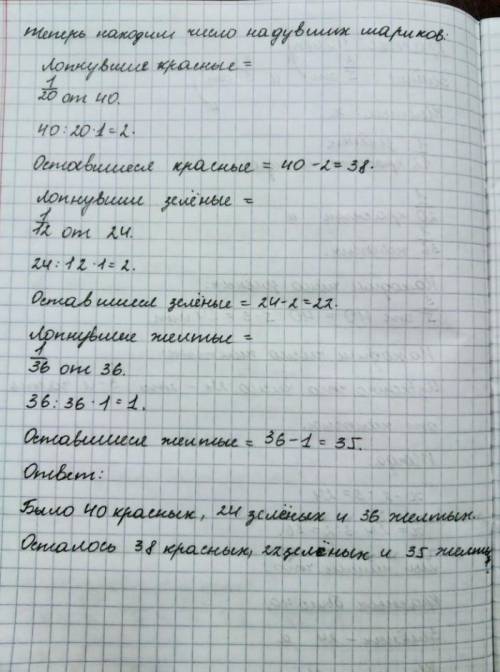 Теперь находим число надувших шариков:
Лопнувшие красные =
1/20 от 40.
40:20·1=2.
Оставшиеся красные = 40-2=38.
Лопнувшие зелёные =
1/12 от 24.
24:12·1=2.
Оставшиеся зелёные = 24-2=22.
Лопнувшие желтые =
1/36 от 36.
36:36·1=1.
Оставшиеся желтые = 36-1=35.
Ответ:
Было 40 красных, 24 зелёных и 36 желтых.
Осталось 38 красных, 22 зелёных и 35 желтц